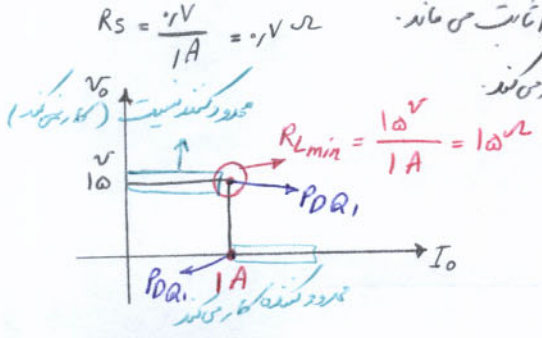 Rs = ۰٫۷ / ۱A = ۰٫۷ Ω
ثابت می ماند.
می‌کند.
Vo
محدود کننده نیست (کار نمی کند)
RLmin = ۱۵V / ۱A = ۱۵Ω
۱۵V
PDQ۱
Io
PDQ۱
۱A
محدود کننده کار می کند